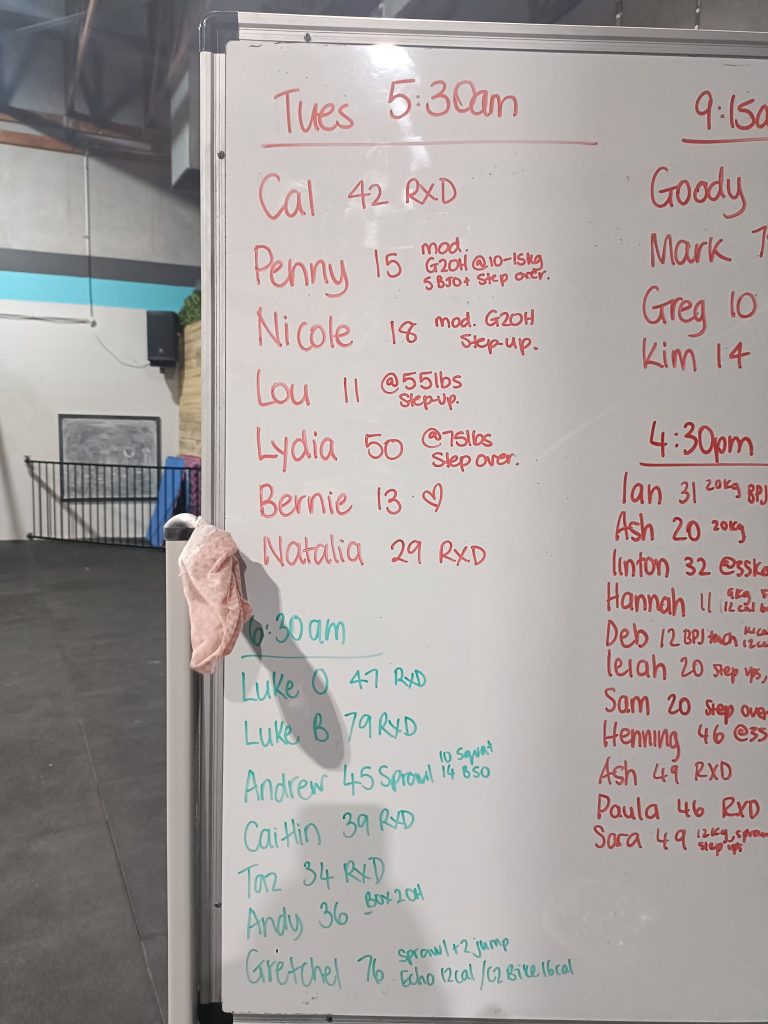 Tues 5:30am
Cal 42 RXD
Penny 15 mod.
G2OH @10-15kg
5 BJO+ Step over.
Nicole 18 mod. G2OH
Step-up.
Lou 11 @55lbs
Step-up.
Lydia 50 @75lbs
Step over.
Bernie 13 ♡
Natalia 29 RXD
6:30am
Luke O 47 RXD
Luke B 79 RXD
Andrew 45 Sprawl 10 Squat
14 BSO
Caitlin 39 RXD
Taz 34 RXD
Andy 36 Box 20H
Gretchel 76 sprawl+2 jump
Echo 12cal /C2 Bike 16cal
9:15a
Goody
Mark 7
Greg 10
Kim 14
4:30pm
Ian 31 20kg BPJ
Ash 20 20kg
linton 32
Hannah 11 9kg
12 cal
Deb 12 BPJ
20 step ups,
Sam 20 Step over
Henning 46
Ash 49 RXD
Paula 46 RXD
Sara 49 12kg, spraw
step ups